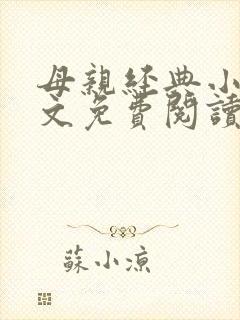 母親經典小
文免費閱讀
蘇小涼